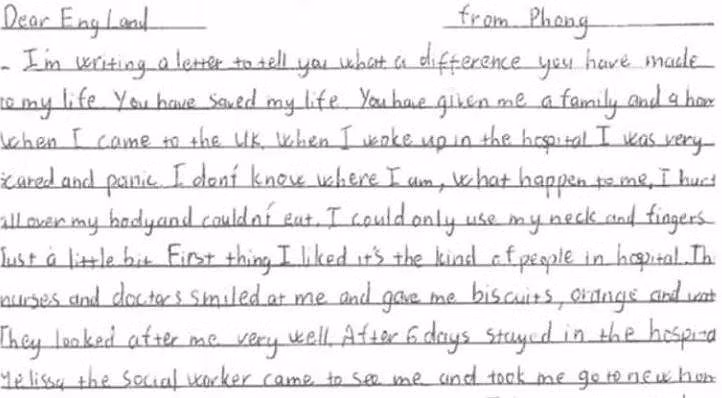 Dear England from Phong
- I'm writing a letter to tell you what a difference you have made
to my life. You have saved my life. You have given me a family and a hom
When I came to the UK. When I woke up in the hospital I was very
scared and panic. I don't know where I am, what happen to me, I hurt
all over my body and couldn't eat. I could only use my neck and fingers
Just a little bit First thing I liked it's the kind of people in hospital. Th
nurses and doctors smiled at me and gave me biscuits, orange and wat
They looked after me very well. After 6 days stayed in the hospita
Melissa the social worker came to see me and took me go to new hom